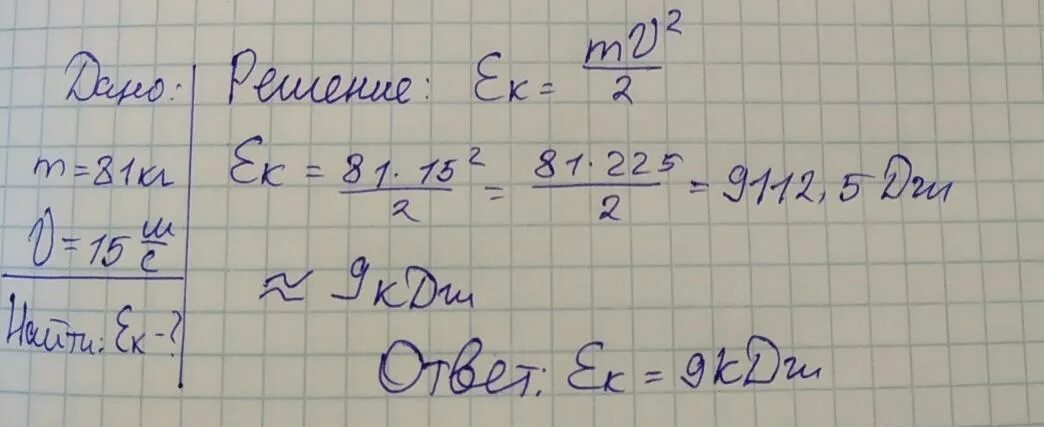 Дано:
m = 81 кг
V = 15 м/с
Найти: Eк - ?
Решение: Eк = mV²/2
Eк = 81 · 15²/2 = 81 · 225/2 = 9112,5 Дж
≈ 9 кДж
Ответ: Eк = 9 кДж